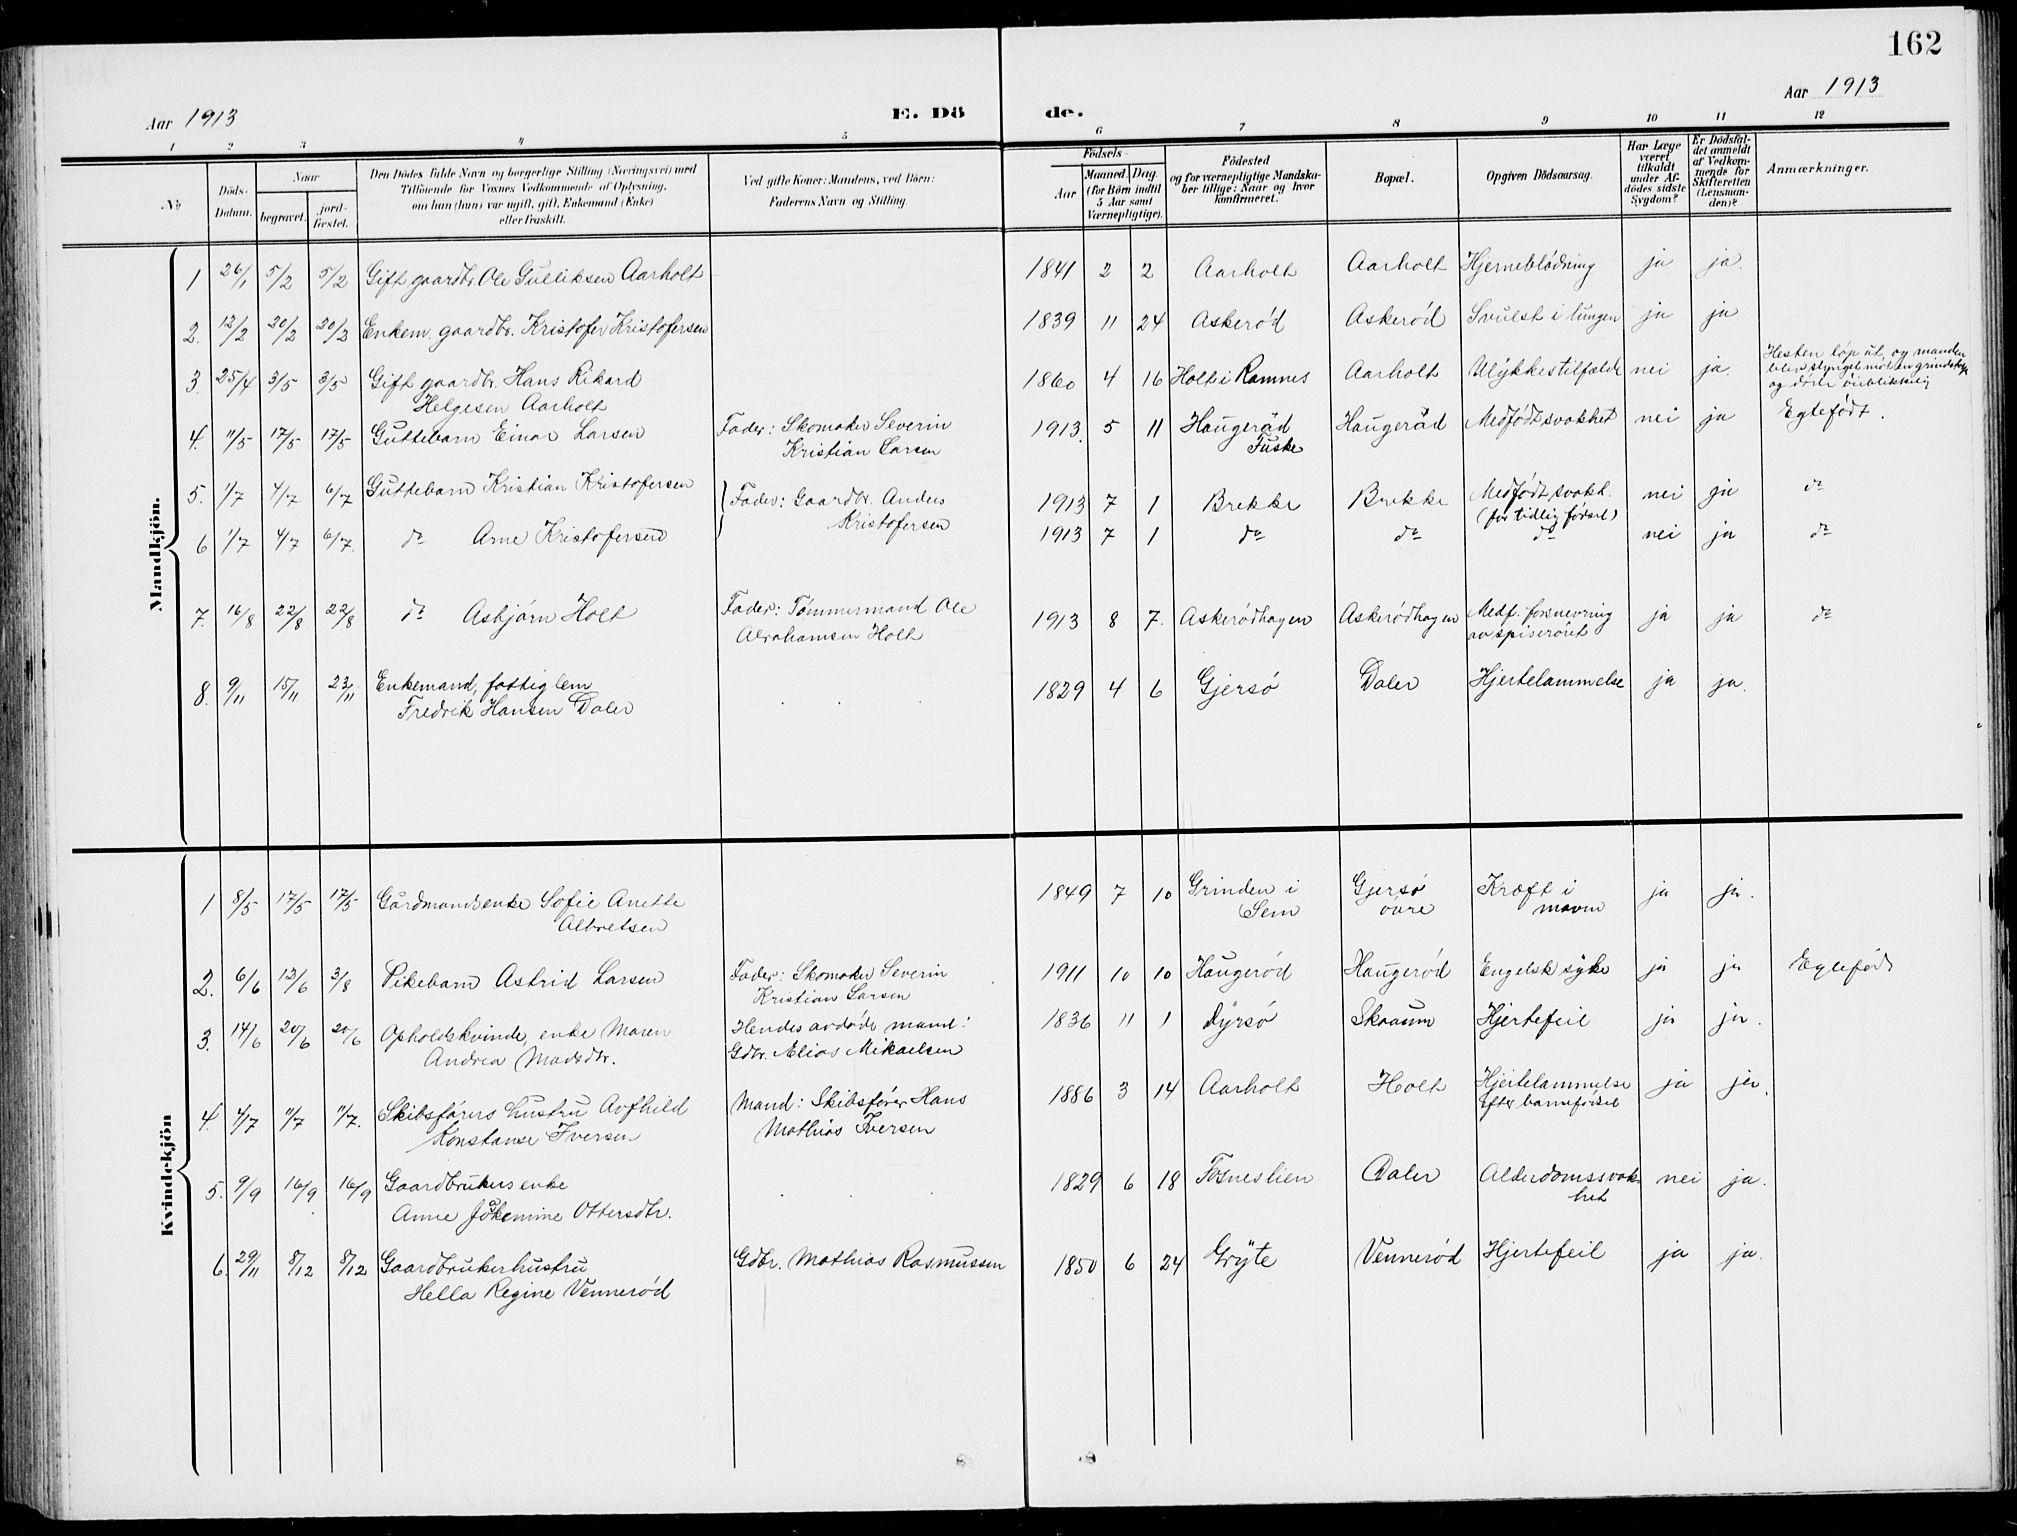 162
Aar 1913
E. Dö de.
Aar 1913
1 2 3 4 5 6 7 8 9 10 11 12
No
Döds-Datum.
Naar
begravet.
jord-fæstet.
Den Dödes fulde Navn og borgerlige Stilling (Næringsvei) med
Tilföiende for Voxnes Vedkommende af Oplysning,
om han (hun) var ugift, gift, Enkemand (Enke)
eller fraskilt.
Ved gifte Koner: Mandens, ved Börn:
Faderens Navn og Stilling.
Födsels-
Aar
Maaned. Dag.
(for Börn indtil
5 Aar samt
Værnepligtige).
Födested
og for værnepligtige Mandska-
ber tillige: Naar og hvor
konfirmeret.
Bopæl.
Opgiven Dödsaarsag.
Har Læge
været
tilkaldt
under Af-
dödes sidste
Sygdom?
Er Dödsfal-
det anmeldt
af Vedkom-
mende for
Skifteretten
(Lensman-
den)?
Anmærkninger.
Mandkjön.
1 26/1 5/2 5/2 Gift gaardbr. Ole Gulliksen Aarholt 1841 2 2 Aarholt Aarholt Hjerneblödning ja ja.
2. 12/2 20/2 20/2 Enkem. gaardbr. Kristofer Kristofersen 1839 11 24 Askeröd Askeröd Svulst i lungen ja ja
3. 25/4 3/5 3/5 Gift gaardbr. Hans Rikard 1860 4 16 Holt i Ramnes Aarholt Ulykkestilfælde nei ja. Hesten löp ut, og manden
Helgesen Aarholt blev slynget mot en grindstolpe
og döde öieblikkelig
4. 11/5 17/5 17/5 Guttebarn Einar Larsen Fader: Skomaker Severin 1913. 5 11 Haugeråd Haugeråd Medfödt svakhet nei ja Egtefödt.
Kristian Larsen Fuske
5. 1/7 4/7 6/7 Guttebarn Kristian Kristofersen Fader: Gaardbr. Anders 1913 7 1 Brekke Brekke Medfödt svakh. nei ja do
Kristofersen (for tidlig försel)
6 1/7 4/7 6/7. do Arne Kristofersen 1913 7 1 do do do nei ja do
7. 16/8 22/8 22/8 do Asbjörn Holt Fader: Tömmermand Ole 1913 8 7. Askerödhagen Askerödhagen Medf. forsnevring ja ja do
Abrahamsen Holt av spiseröret
8. 9/11 15/11 23/11 Enkemand, fattiglem 1829 4 6 Gjersö Daler Hjertelammelse ja ja.
Fredrik Hansen Daler
Kvindekjön
1 8/5 17/5 17/5 Gårdmandsenke Sofie Anette 1849 7 10 Grinden i Gjersö Kræft i ja ja.
Albretsen Sem övre maven
2. 6/6 13/6 3/8 Pikebarn Astrid Larsen Fader: Skomaker Severin 1911 10 10 Haugeröd Haugeröd Engelsk syke ja ja Egtefödt
Kristian Larsen
3. 14/6 20/6 20/6 Opholdskvinde, enke Maren Hendes avdöde mand: 1836 11 1 Dyrsö Skaaum Hjertefeil ja ja.
Andrea Madsdtr. Gdbr. Elias Mikaelsen
4. 4/7 11/7 11/7. Skibsförers hustru Arfhild Mand: Skibsförer Hans 1886 3 14 Aarholt Holt Hjertelammelse ja ja.
Konstanse Iversen Mathias Iversen efter barneförsel
5. 9/9 16/9 16/9 Gaardbrukers enke 1829 6 18 Fosneslien Daler Alderdomssvak- nei ja.
Anne Jokemine Ottersdtr. het
6. 29/11 8/12 8/12 Gaardbrukerhustru Gdbr. Mathias Rasmussen 1850 6 24 Gryte Venneröd Hjertefeil ja ja.
Hella Regine Venneröd